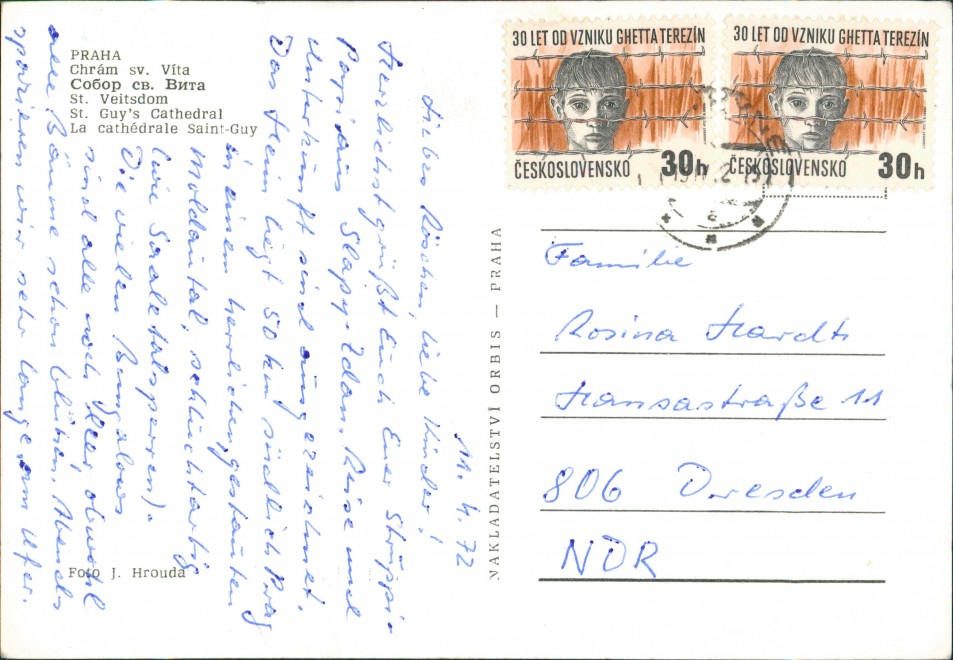 PRAHA
Chrám sv. Víta
Собор св. Вита
St. Veitsdom
St. Guy's Cathedral
La cathédrale Saint-Guy
Foto J. Hrouda
NAKLADATELSTVÍ ORBIS — PRAHA
30 LET OD VZNIKU GHETTA TEREZÍN
ČESKOSLOVENSKO 30h
30 LET OD VZNIKU GHETTA TEREZÍN
ČESKOSLOVENSKO 30h
11. 4. 72
Liebes Röschen, liebe Kinder!
Herzlichst grüßt Euch Euer Struppi-
Papi aus Slapy-Ždan. Reise und
Unterkunft sind ausgezeichnet.
Das Heim liegt 50 km südlich Prag
in einem herrlichen, gestauten
Moldautal, schluchtartig
(wie Saaletalsperren).
Die vielen Bungalows
sind alle noch leer, obwohl
alle Bäume schon blühen. Abends
spazieren wir sehr lange am Ufer.
Familie
Rosina Hardt
Hansastraße 11
806 Dresden
NDR